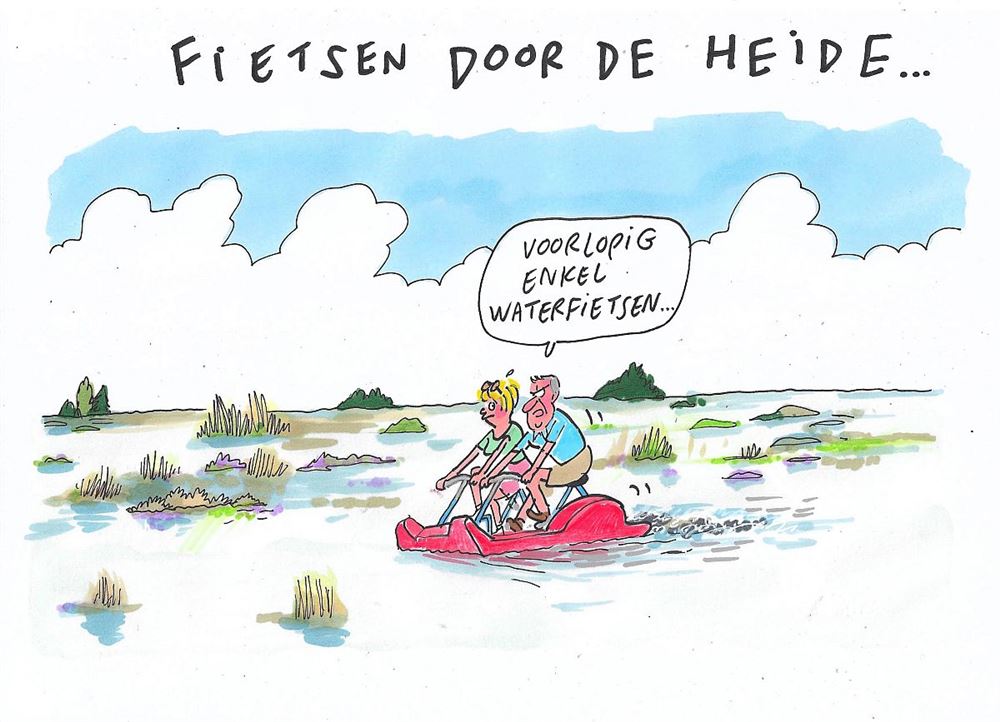 FIETSEN DOOR DE HEIDE...
VOORLOPIG
ENKEL
WATERFIETSEN...